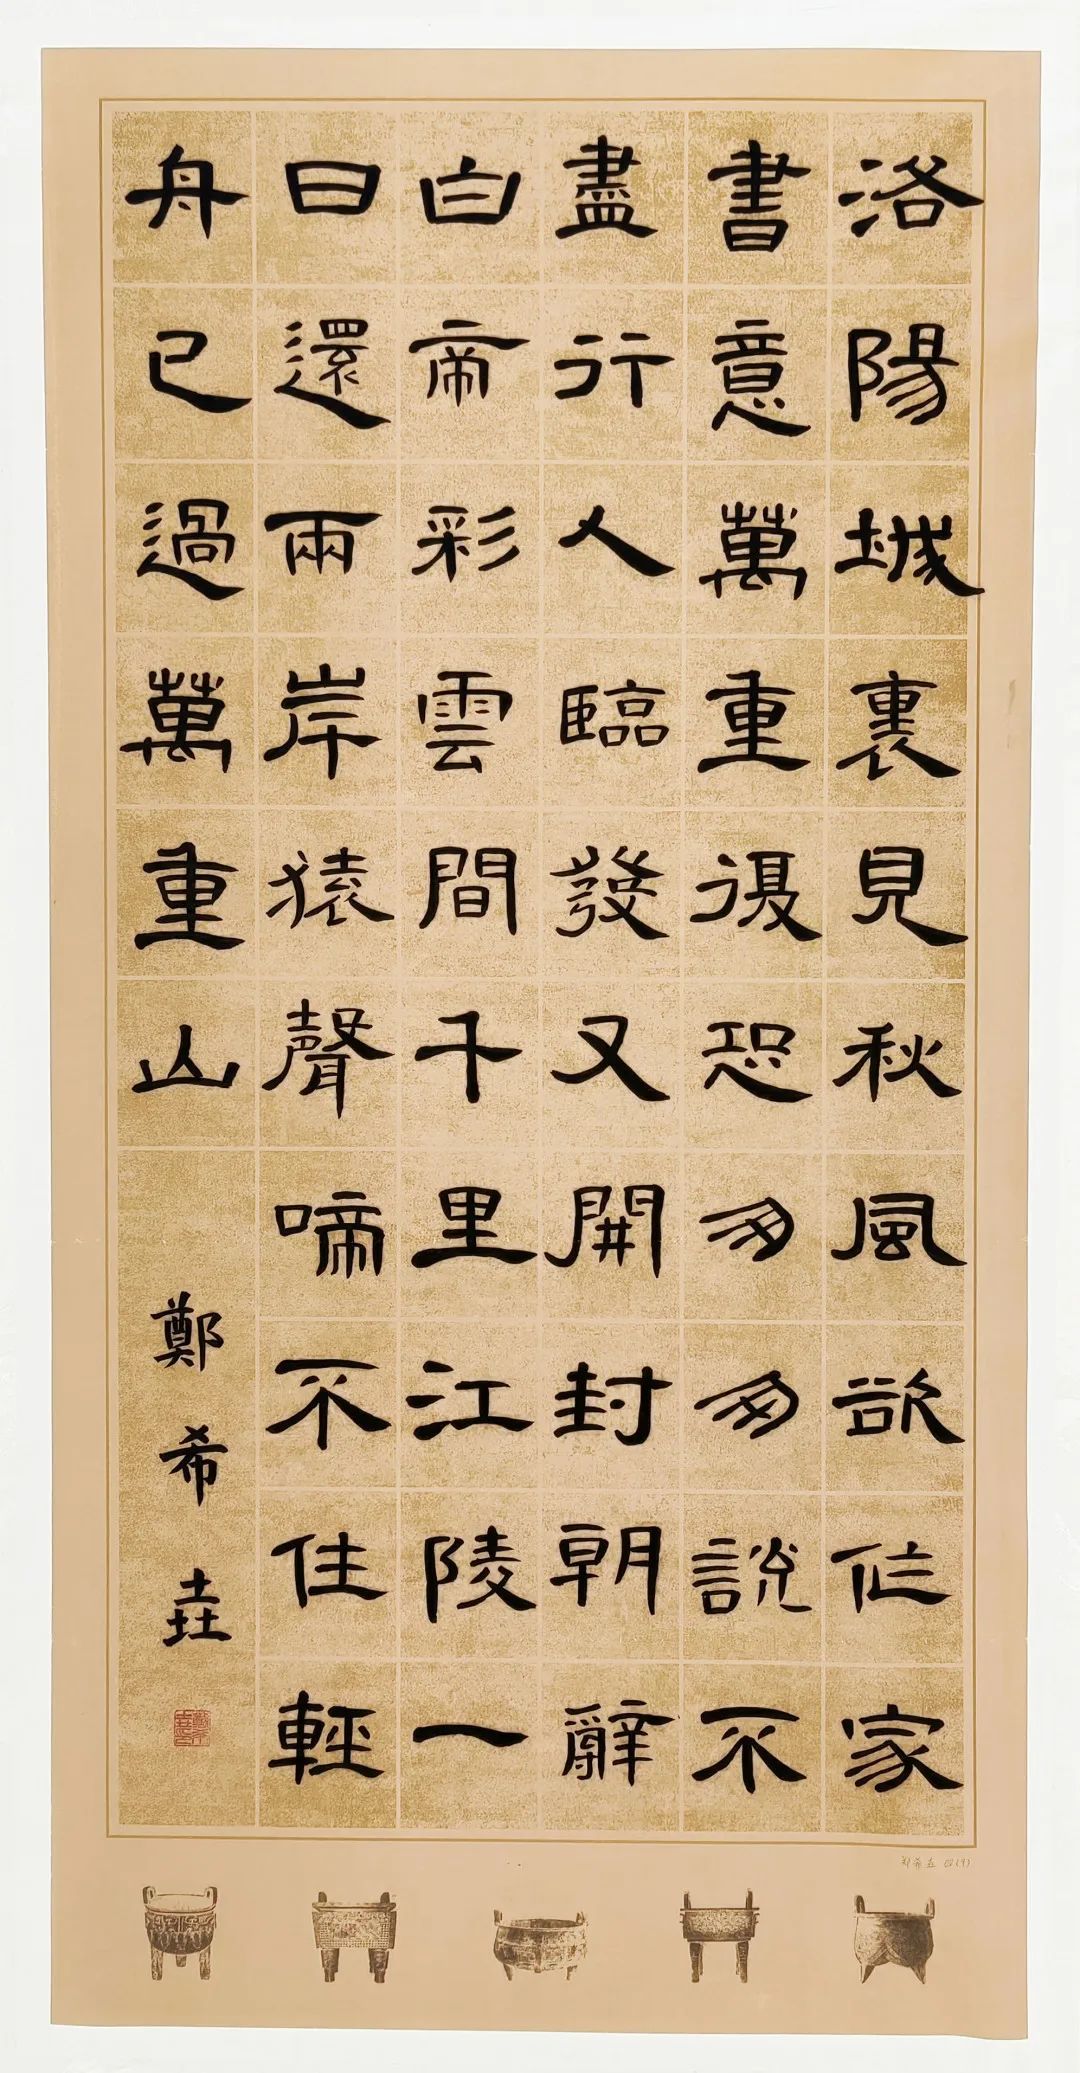 洛陽城裏見秋風欲作家
書意萬重復恐匆匆說不
盡行人臨發又開封朝辭
白帝彩雲間千里江陵一
日還兩岸猿聲啼不住輕
舟已過萬重山
鄭希垚
郑希垚 四(9)